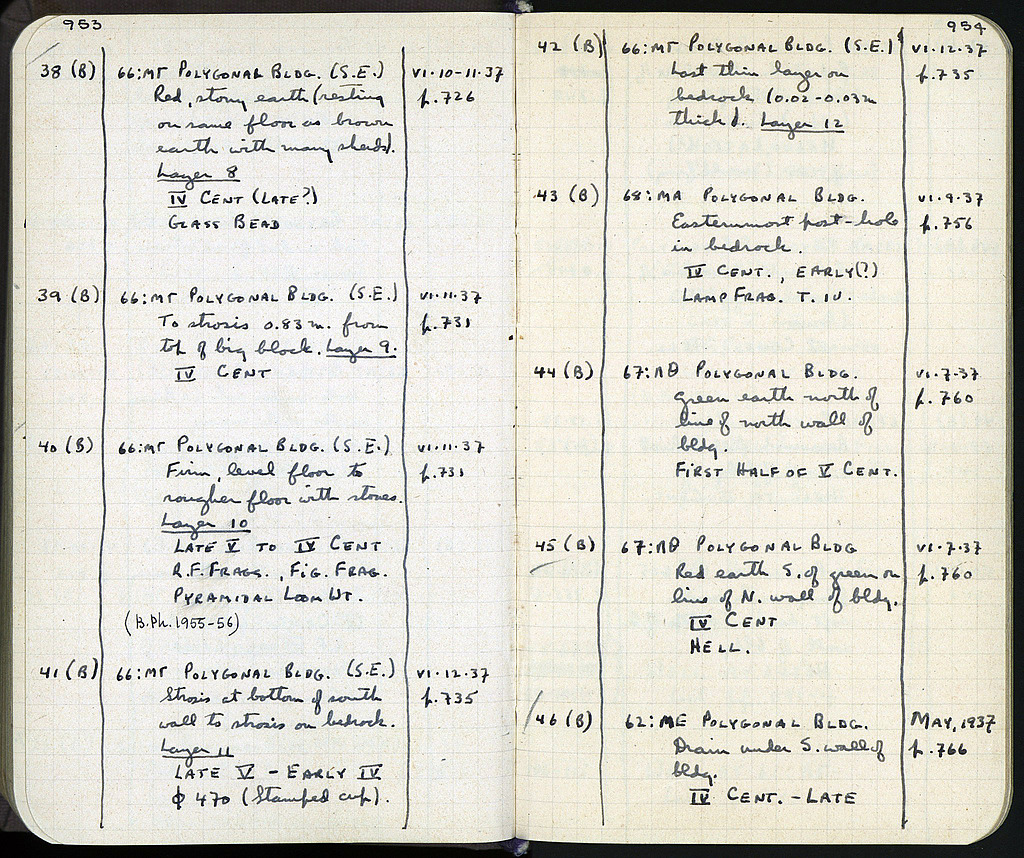 953
38 (B) 66:ΜΓ POLYGONAL BLDG. (S.E.) VI·10-11·37
Red, stony earth (resting p. 726
on same floor as brown
earth with many sherds).
Layer 8
IV CENT (LATE?)
GLASS BEAD
39 (B) 66:ΜΓ POLYGONAL BLDG. (S.E.) VI·11·37
To strosis 0.83 m. from p. 731
top of big block. Layer 9.
IV CENT
40 (B) 66:ΜΓ POLYGONAL BLDG. (S.E.) VI·11·37
Firm, level floor to p. 731
rougher floor with stones.
Layer 10
LATE V TO IV CENT
R.F. FRAGS., FIG. FRAG.
PYRAMIDAL LOOM WT.
(B.Ph. 1955-56)
41 (B) 66:ΜΓ POLYGONAL BLDG. (S.E.) VI·12·37
Strosis at bottom of south p. 735
wall to strosis on bedrock.
Layer 11
LATE V - EARLY IV
φ 470 (Stamped cup).
954
42 (B) 66:ΜΓ POLYGONAL BLDG. (S.E.) VI·12·37
Last thin layer on p. 735
bedrock (0.02-0.03m
thick). Layer 12
43 (B) 68:ΜΑ POLYGONAL BLDG. VI·9·37
Easternmost post-hole p. 756
in bedrock.
IV CENT., EARLY(?)
LAMP FRAG. T. IV.
44 (B) 67:ΛΘ POLYGONAL BLDG. VI·7·37
Green earth north of p. 760
line of north wall of
bldg.
FIRST HALF OF V CENT.
45 (B) 67:ΛΘ POLYGONAL BLDG VI·7·37
Red earth S. of green on p. 760
line of N. wall of bldg.
IV CENT
HELL.
46 (B) 62:ΜΕ POLYGONAL BLDG. MAY, 1937
Drain under S. wall of p. 766
bldg.
IV CENT. - LATE